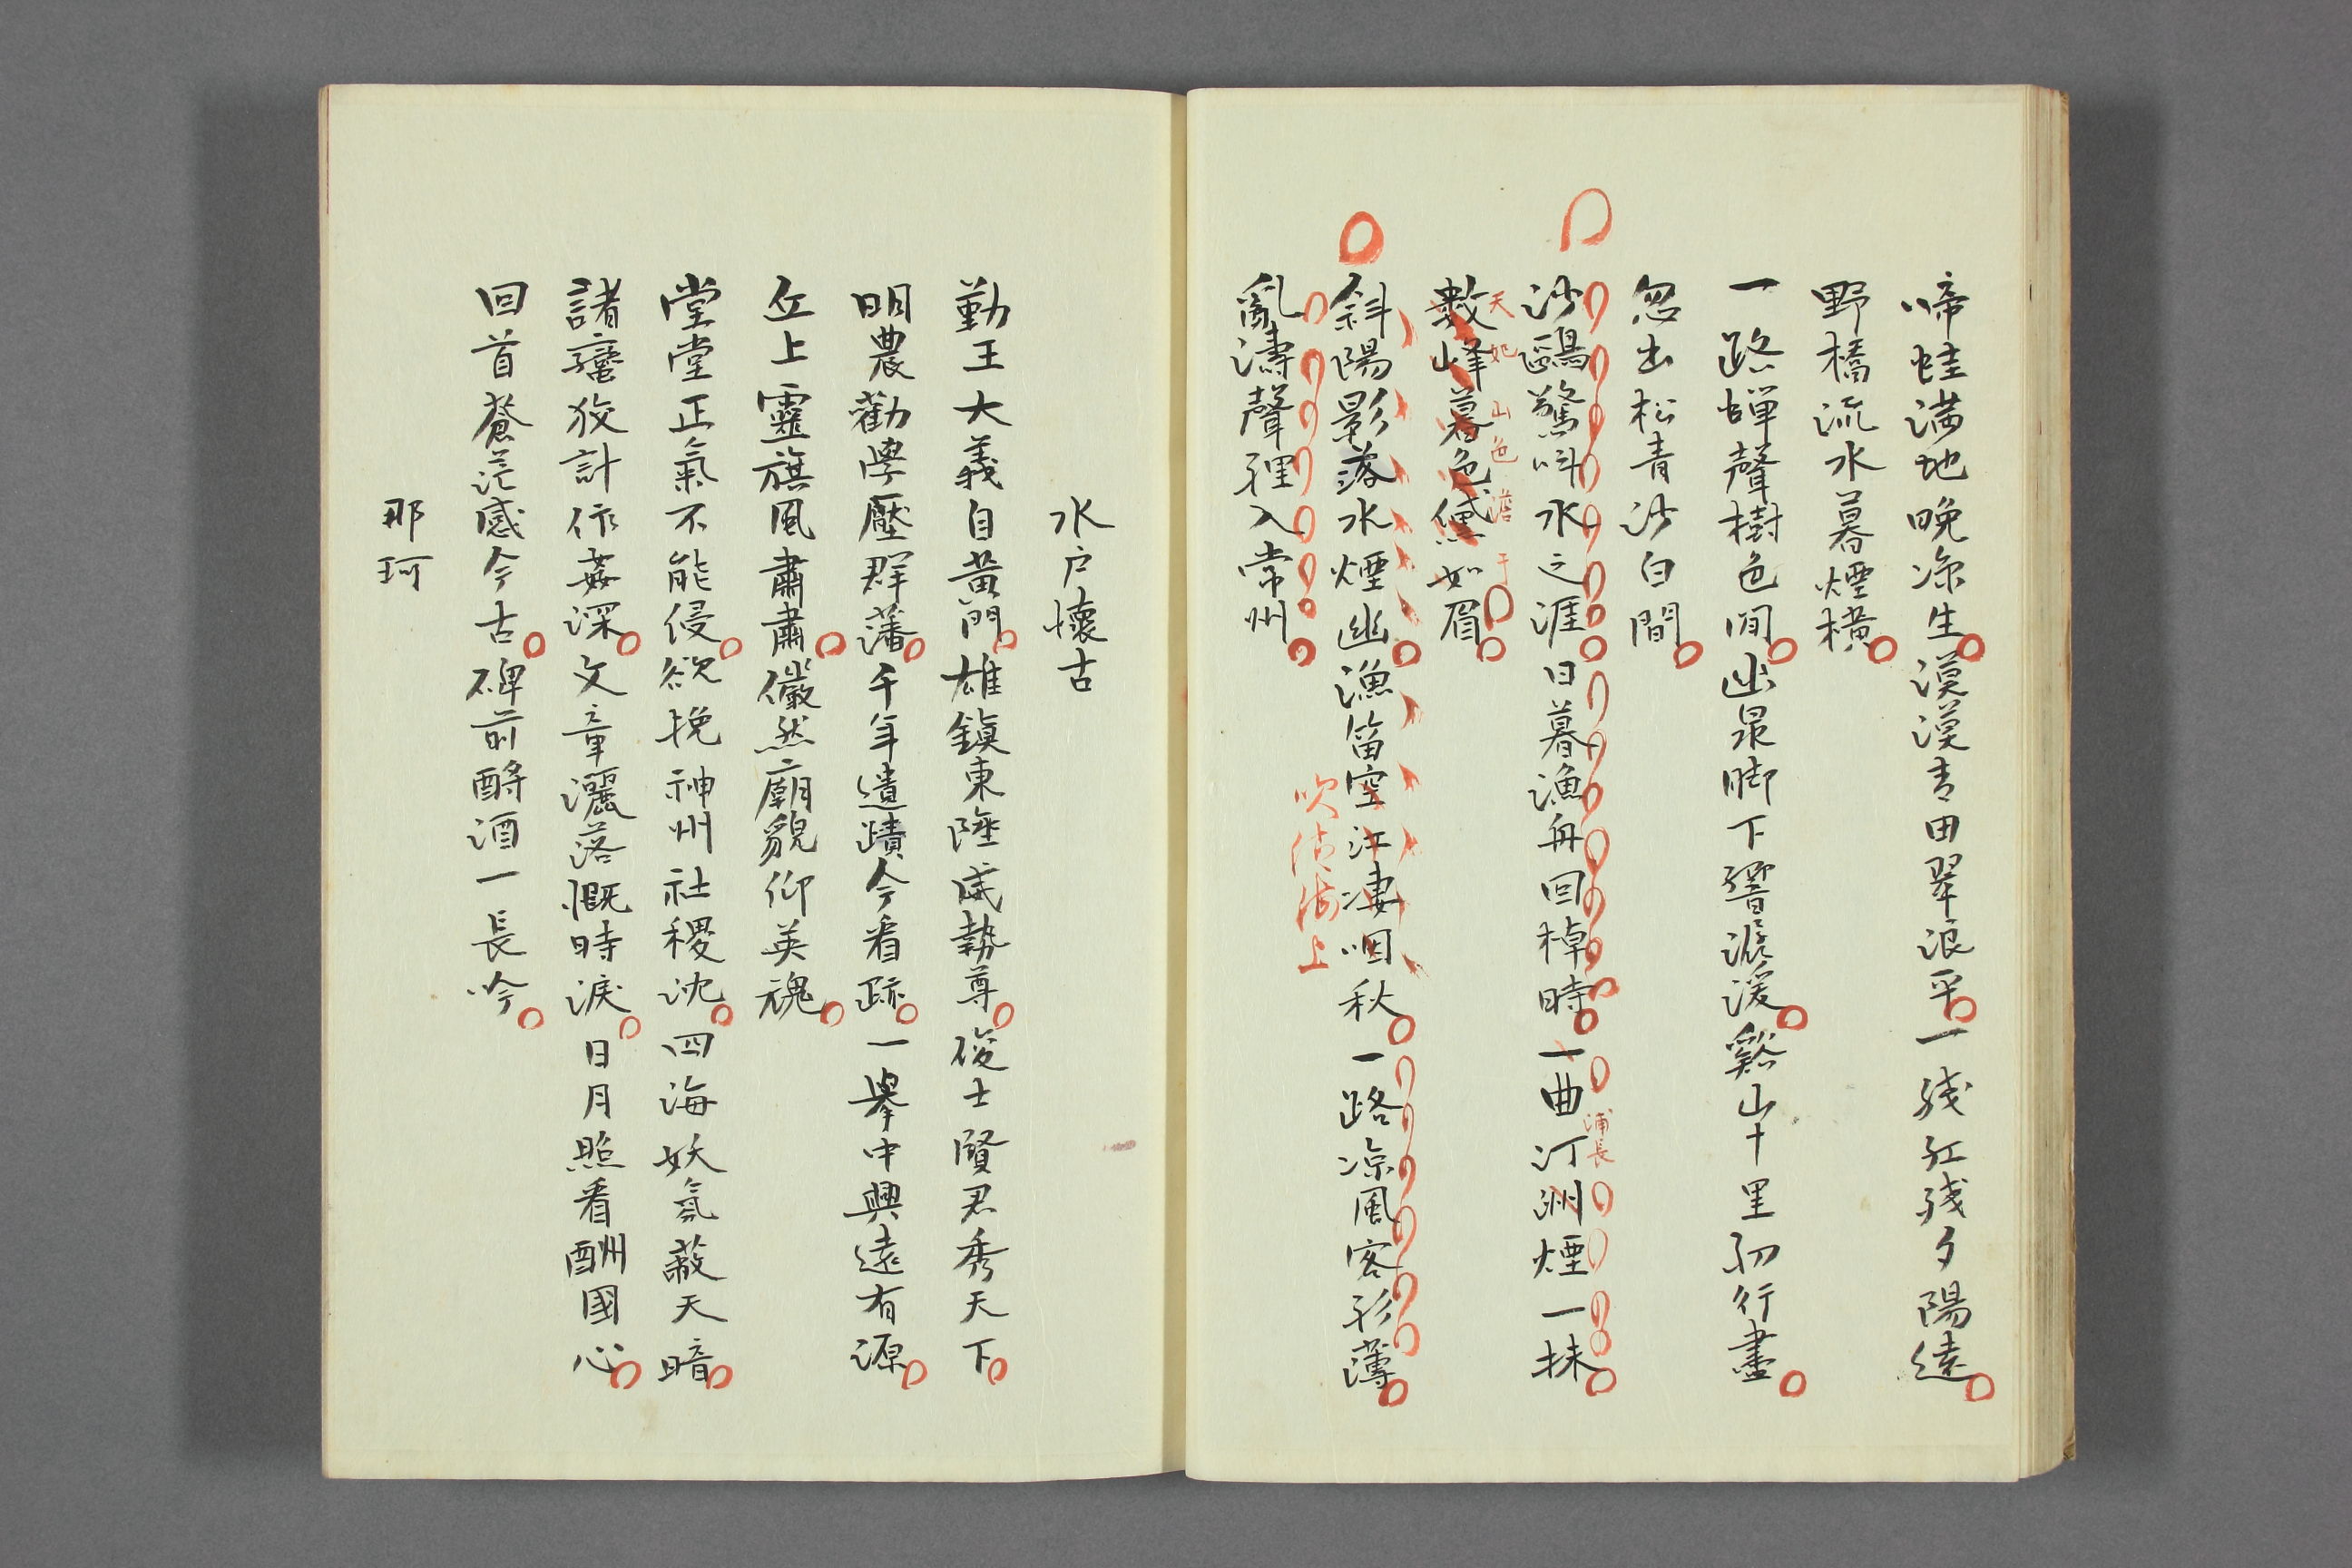 啼蛙満地晩凉生漠漠青田翠浪平一残紅残夕陽遠
野橋流水暮煙横
一路蝉聲樹色間幽泉脚下響潺湲谿山十里初行盡
忽出松青沙白間
沙鷗驚叫水之涯日暮漁舟回棹時一曲汀洲煙一抹
浦長
天妃山色澹于
數峰暮色黛如眉
斜陽影落水煙幽漁笛空江凄咽秋一路凉風客衫薄
上
亂濤聲裡入常州
水戸懷古
勤王大義自黄門雄鎮東陲威勢尊俊士賢君秀天下
明農勸學壓群藩千年遺蹟今看跡一擧中興遠有源
丘上靈旗風肅肅儼然廟貌仰英魂
堂堂正氣不能侵欲挽神州社稷沈四海妖氛蔽天暗
諸蠻狡計作姦深文章灑落慨時淚日月照看酬國心
回首蒼茫感今古碑前酹酒一長吟
那珂